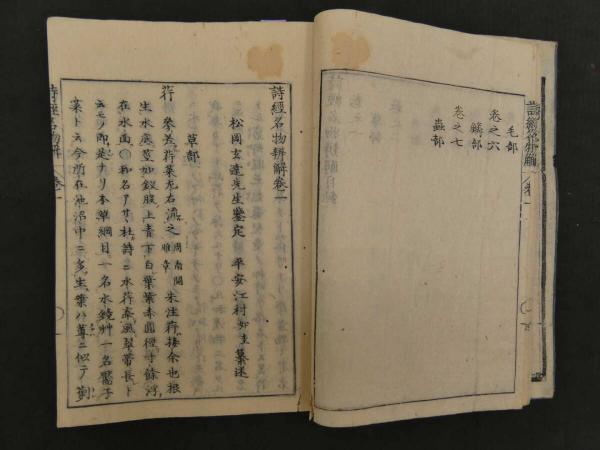 毛部
卷之六
鱗部
卷之七
蟲部
詩經名物辨解卷一
松岡玄達先生鑒定 平安江村如圭纂述
草部
荇 參差荇菜左右流之 周南關雎章 朱注荇接余也根
生水底莖如釵股上青下白葉紫赤圓徑寸餘浮
在水面○和名アサ杜詩ニ水荇牽風翠帶長ト
云モノ即是ナリ本草綱目一名水鏡草一名靨子
菜ト云今所在池沼中ニ多生葉ハ蓴ニ似テ